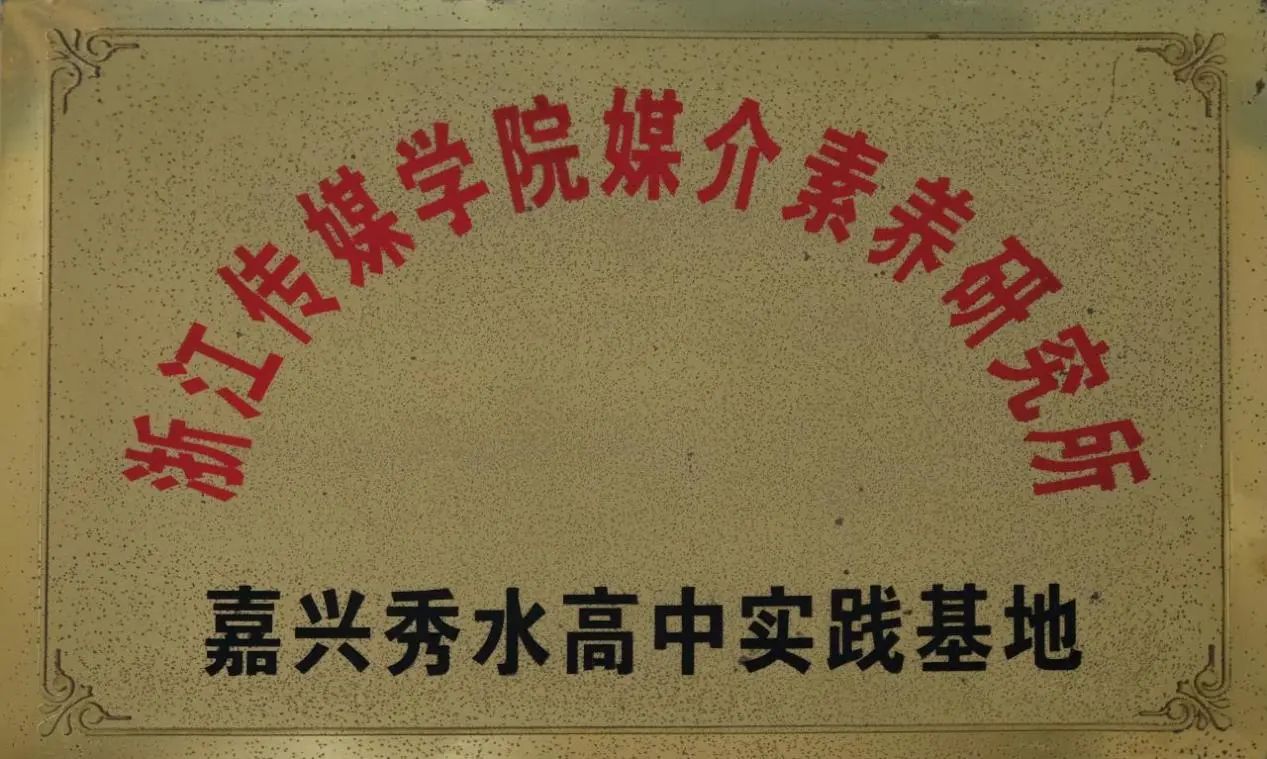 浙江传媒学院媒介素养研究所
嘉兴秀水高中实践基地